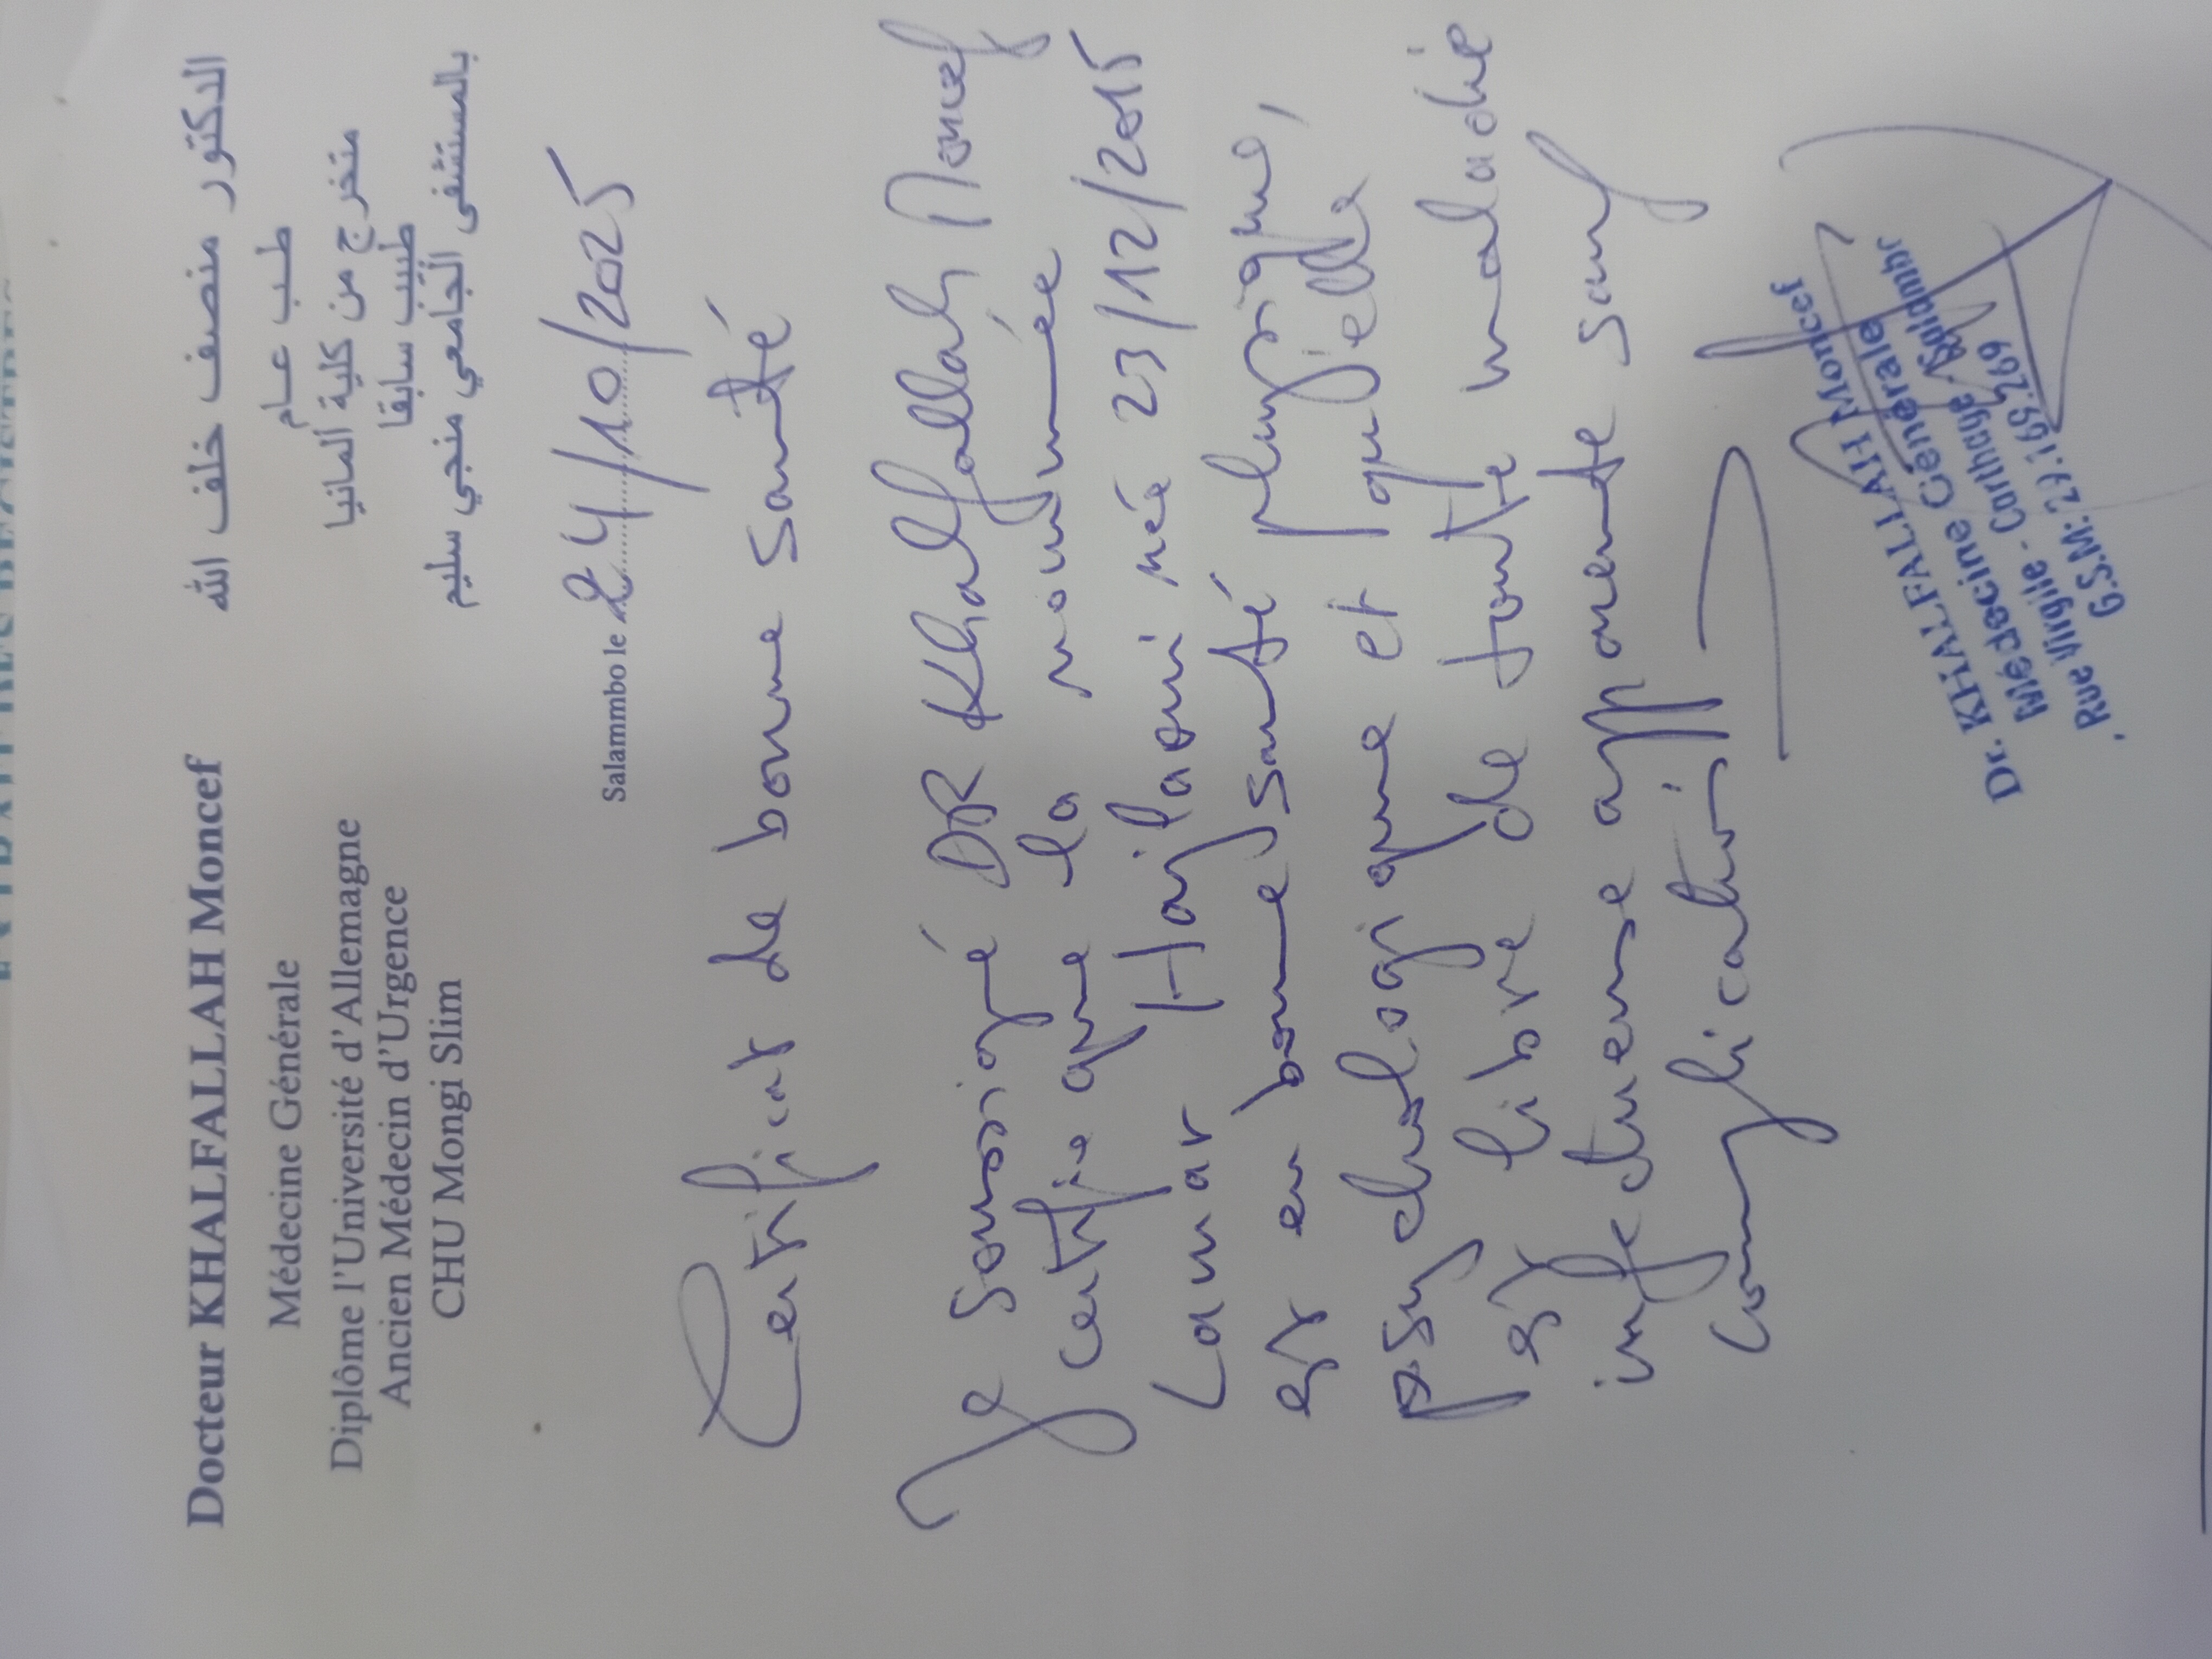 Docteur KHALFALLAH Moncef
Médecine Générale
Diplôme l'Université d'Allemagne
Ancien Médecin d'Urgence
CHU Mongi Slim
الدكتور منصف خلف الله
طب عام
متخرج من كلية ألمانيا
طبيب سابقا
بالمستشفى الجامعي منجي سليم
Salammbo le 24/10/2025
Certificat de bonne santé
Je soussigné DR Khalfallah Moncef
certifie que la nommée
Lamar née 23/12/2015
est en bonne santé physique,
psychologique et qu'elle
est libre de toute maladie
infectueuse apparente sauf
complication
Dr. KHALFALLAH Moncef
Médecine Générale
Rue Virgile - Carthage - Salammbo
G.S.M: